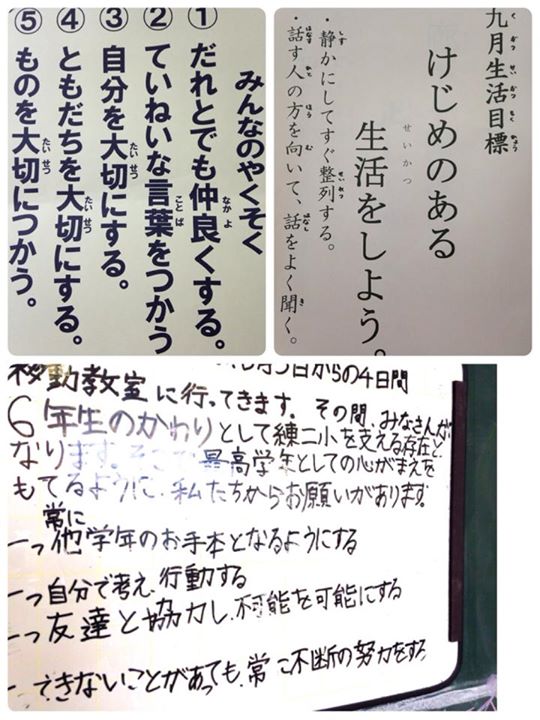 みんなのやくそく
①だれとでも仲良くする。
②ていねいな言葉をつかう
③自分を大切にする。
④ともだちを大切にする。
⑤ものを大切につかう。
九月生活目標
けじめのある
生活をしよう。
・静かにしてすぐ整列する。
・話す人の方を向いて、話をよく聞く。
日からの4日間
移動教室に行ってきます。その間、みなさんが
6年生のかわりとして練二小を支える存在と
なります。そこで最高学年としての心がまえを
もてるように、私たちからお願いがあります。
常に
一つ他学年のお手本となるようにする
一つ自分で考え、行動する
一つ友達と協力し、不可能を可能にする
できないことがあっても、常に不断の努力をする